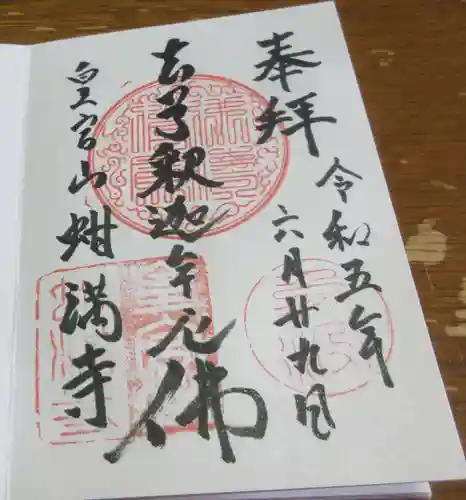 奉拝
令和五年
六月廿九日
釈迦牟尼佛
皇宮山蚶満寺